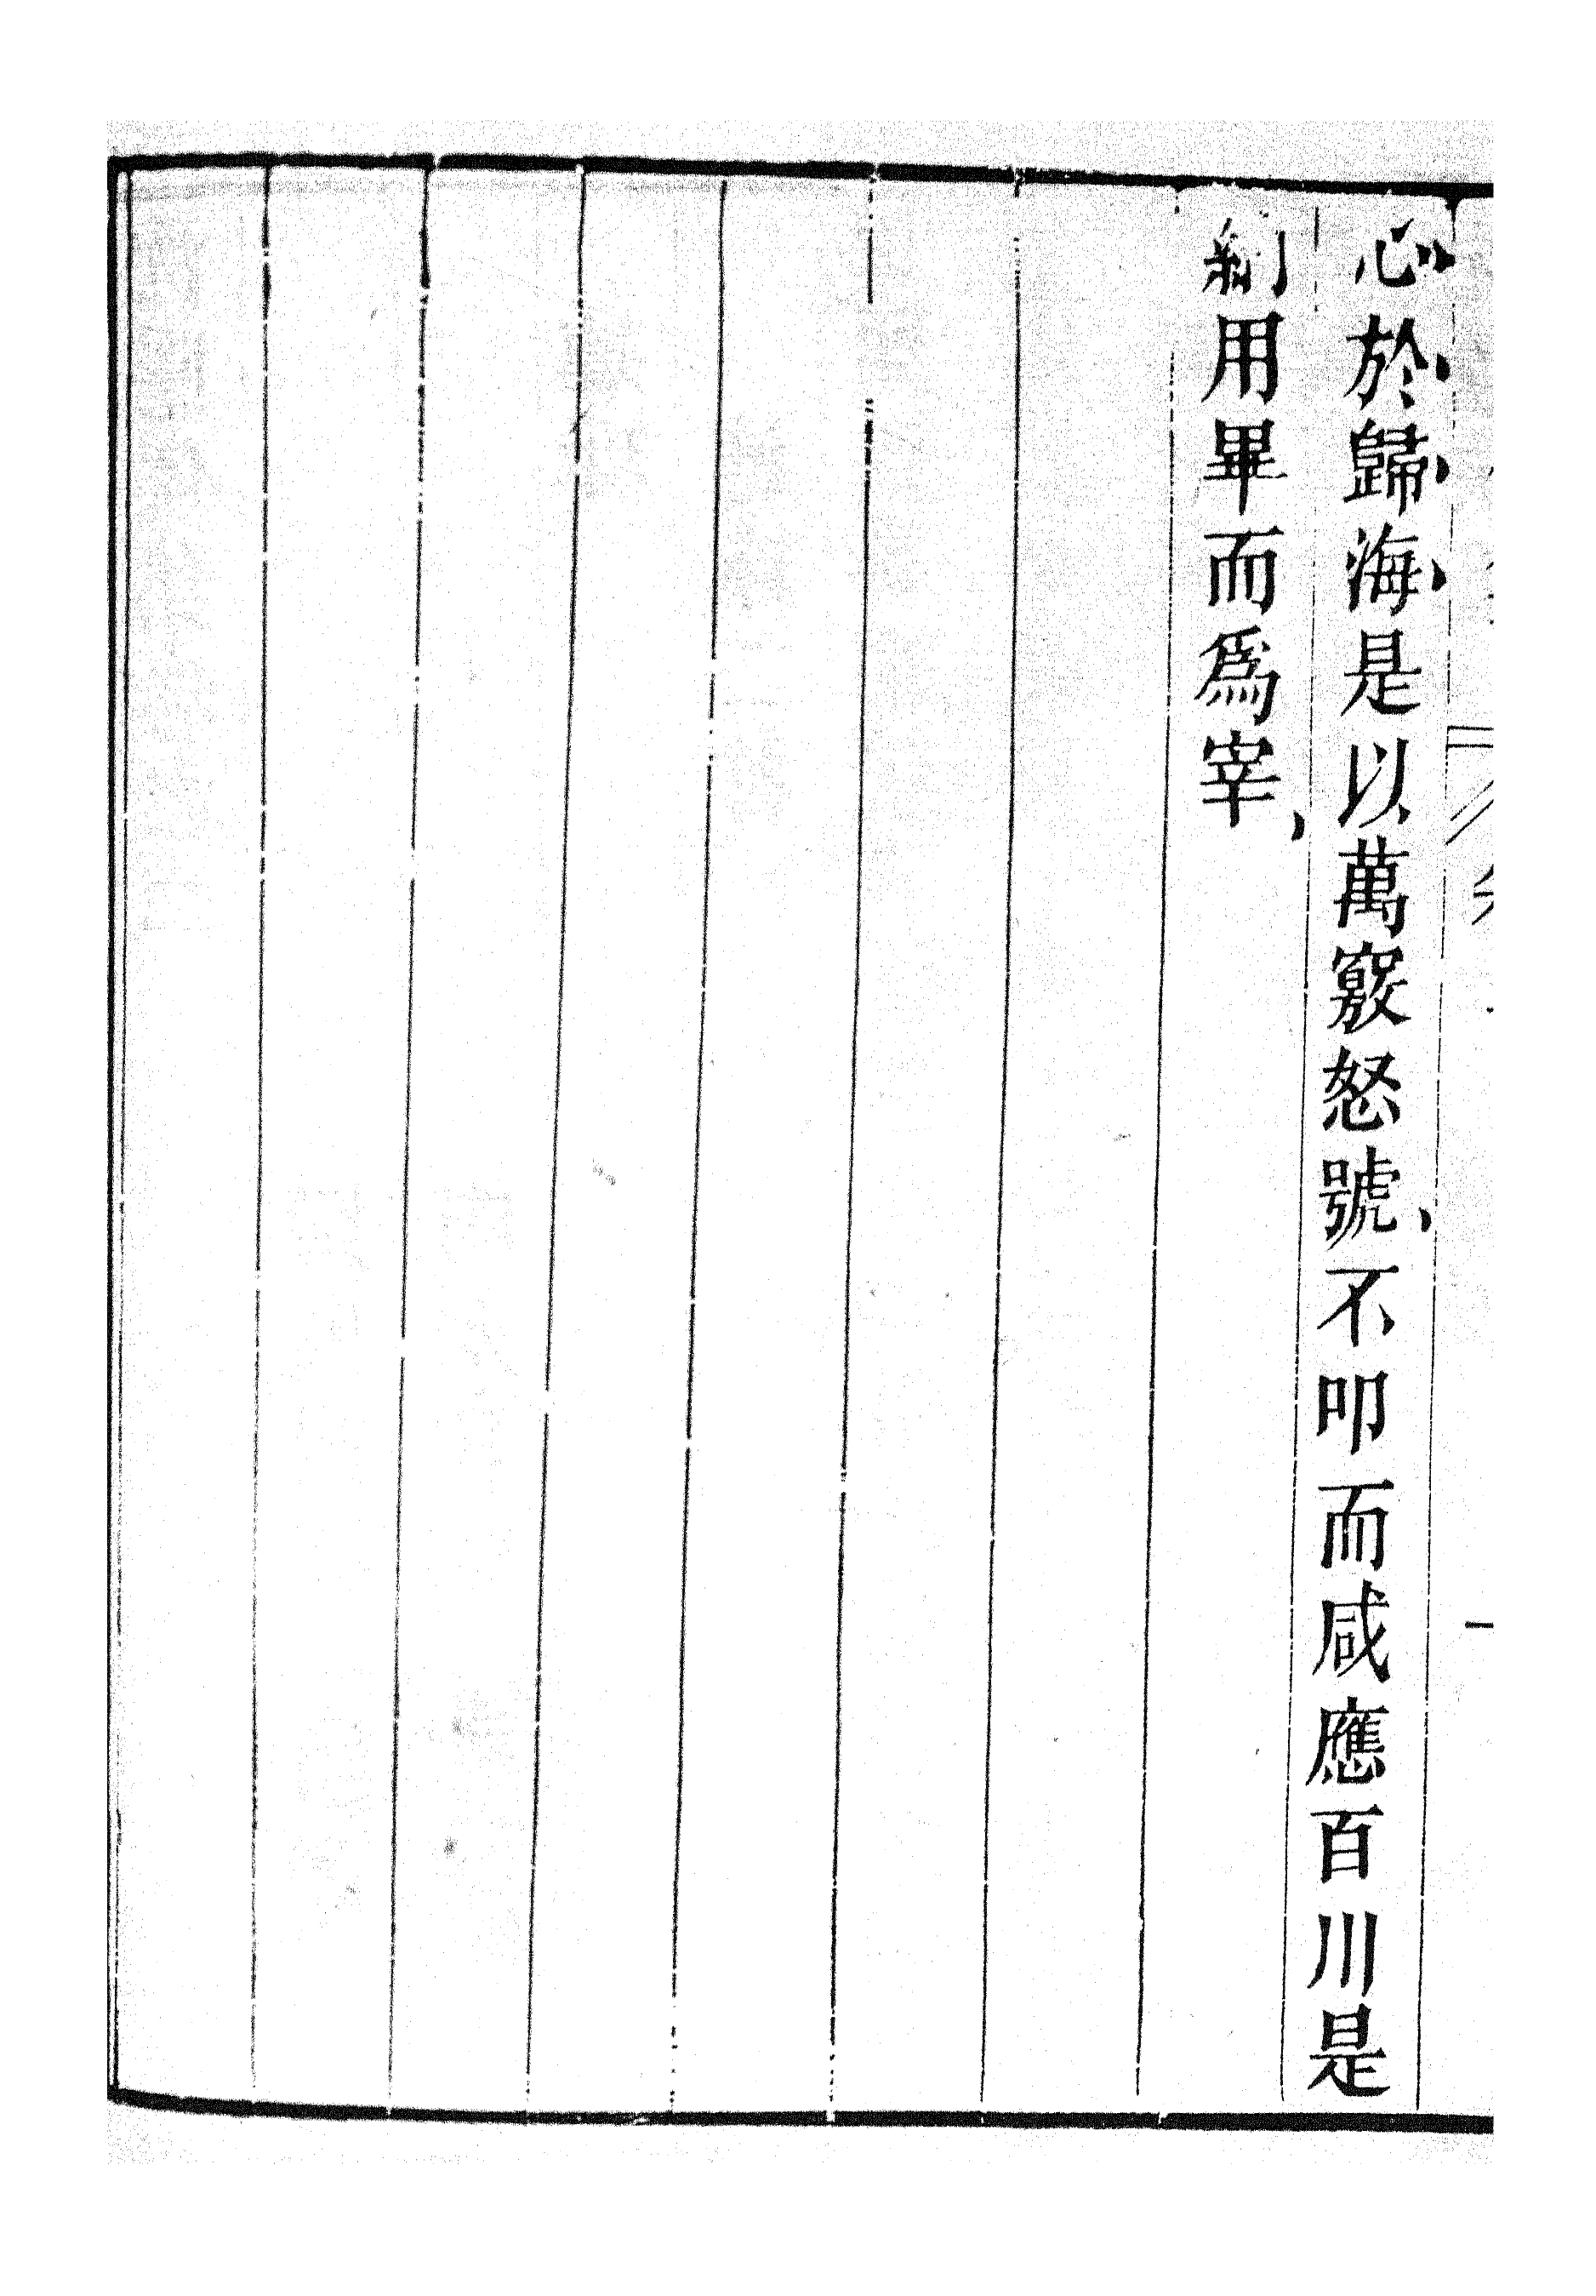 心於歸海是以萬竅怒號、不叩而咸應百川是
納用畢而爲宰、